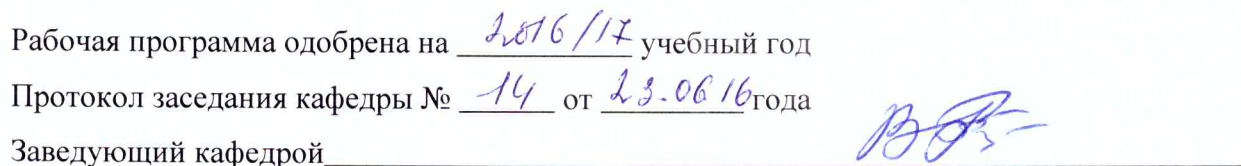 Рабочая программа одобрена на 2016/17 учебный год
Протокол заседания кафедры № 14 от 23.06 16 года
Заведующий кафедрой